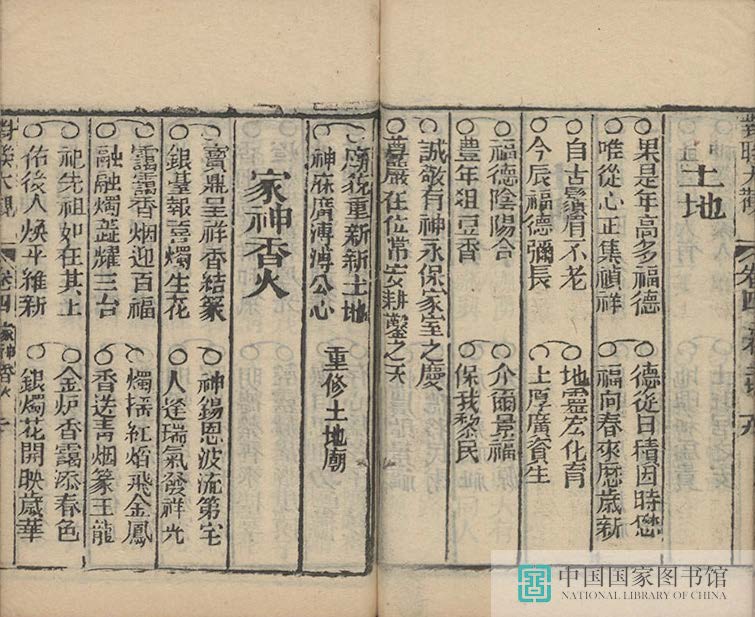 土地
果是年高多福德　德從日積因時懋
唯從心正集禎祥　福向春來歷歲新
自古鬚眉不老　地靈宏化育
今辰福德彌長　上厚廣資生
福德陰陽合　介爾景福
豐年俎豆香　保我黎民
誠敬有神永保家室之慶
尊嚴在位常安耕鑿之天
廟貌重新新土地
神庥廣溥溥公心　重修土地廟
家神香火
寶鼎呈祥香結篆　神錫恩波流第宅
銀臺報喜燭生花　人逢瑞氣發祥光
靄靄香烟迎百福　燭搖紅焰飛金鳳
融融燭蕊耀三台　香送青烟篆玉龍
祀先祖如在其上　金炉香靄添春色
佑後人煥乎維新　銀燭花開映歲華
大觀　卷四　家神香火
中国国家图书馆
NATIONAL LIBRARY OF CHINA